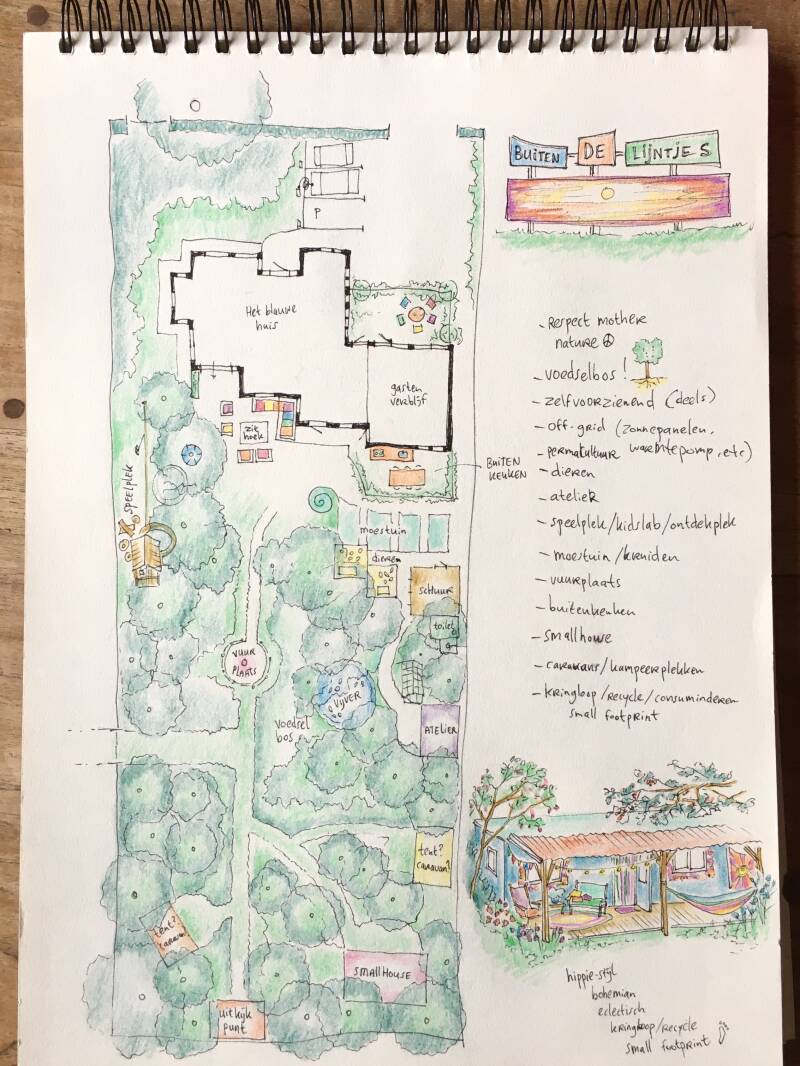 BUITEN DE LIJNTJES
P
Het blauwe
huis
gasten
verblijf
zit
hoek
BUITEN
KEUKEN
SPEELPLEK
moestuin
dieren
SCHUUR
toilet
VUUR
PLAATS
VIJVER
VOEDSEL
BOS
ATELIER
tent?
caravan?
tent?
caravan
SMALLHOUSE
uitkijk
punt
- RESPECT MOTHER
NATURE
- VOEDSELBOS!
- ZELFVOORZIENEND (deels)
- OFF-GRID (ZONNEPANELEN,
WARMTEPOMP, etc)
- PERMACULTUUR
- DIEREN
- ATELIER
- SPEELPLEK/KIDSLAB/ONTDEKPLEK
- MOESTUIN/KRUIDEN
- VUURPLAATS
- BUITENKEUKEN
- SMALLHOUSE
- CARAVANS/KAMPEERPLEKKEN
- KRINGLOOP/RECYCLE/CONSUMINDEREN
SMALL FOOTPRINT
hippie-stijl
bohemian
eclectisch
kringloop/RECYCLE
small footprint